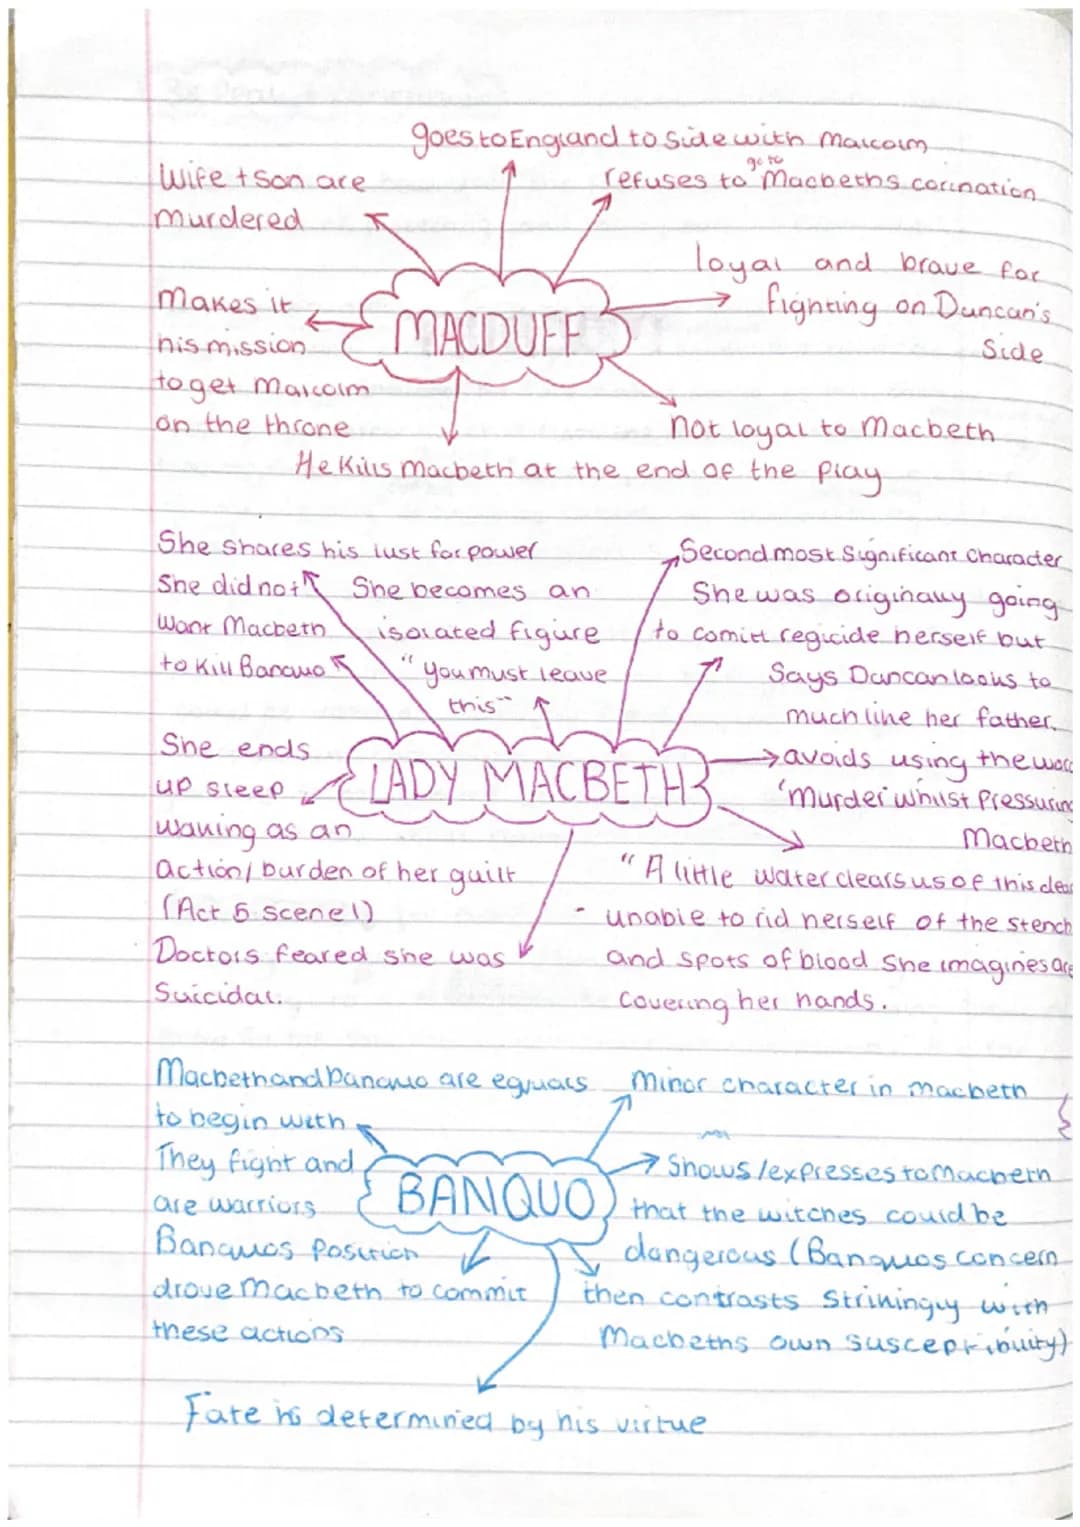 goes to England to side with Malcolm
go to
refuses to "Macbeths corination
Wife + son are
murdered
loyal and brave for
fighting on Duncan's
side
Makes it
his mission
to get Malcolm
on the throne
MACDUFF
Not loyal to Macbeth
He kills Macbeth at the end of the play
She shares his lust for power
She did not
want Macbeth
to kill Banquo
She becomes an
isolated figure
"you must leave
this"
Second most significant character
She was originally going
to comitt regicide herself but
Says Duncan looks to
much like her father.
LADY MACBETH
She ends
up sleep
walking as an
action/burden of her guilt
(Act 5 scene 1)
Doctors feared she was
suicidal.
avoids using the word
'murder whilst pressuring
Macbeth
"A little water clears us of this deed
- unable to rid herself of the stench
and spots of blood she imagines are
covering her hands.
Macbeth and Banquo are equals
to begin with
They fight and
are warriors
Minor character in macbeth
BANQUO
Shows/expresses to Macbeth
that the witches could be
dangerous (Banquos concern
then contrasts strikingly with
Macbeths own susceptibility)
Banquos position
drove Macbeth to commit
these actions
Fate is determined by his virtue